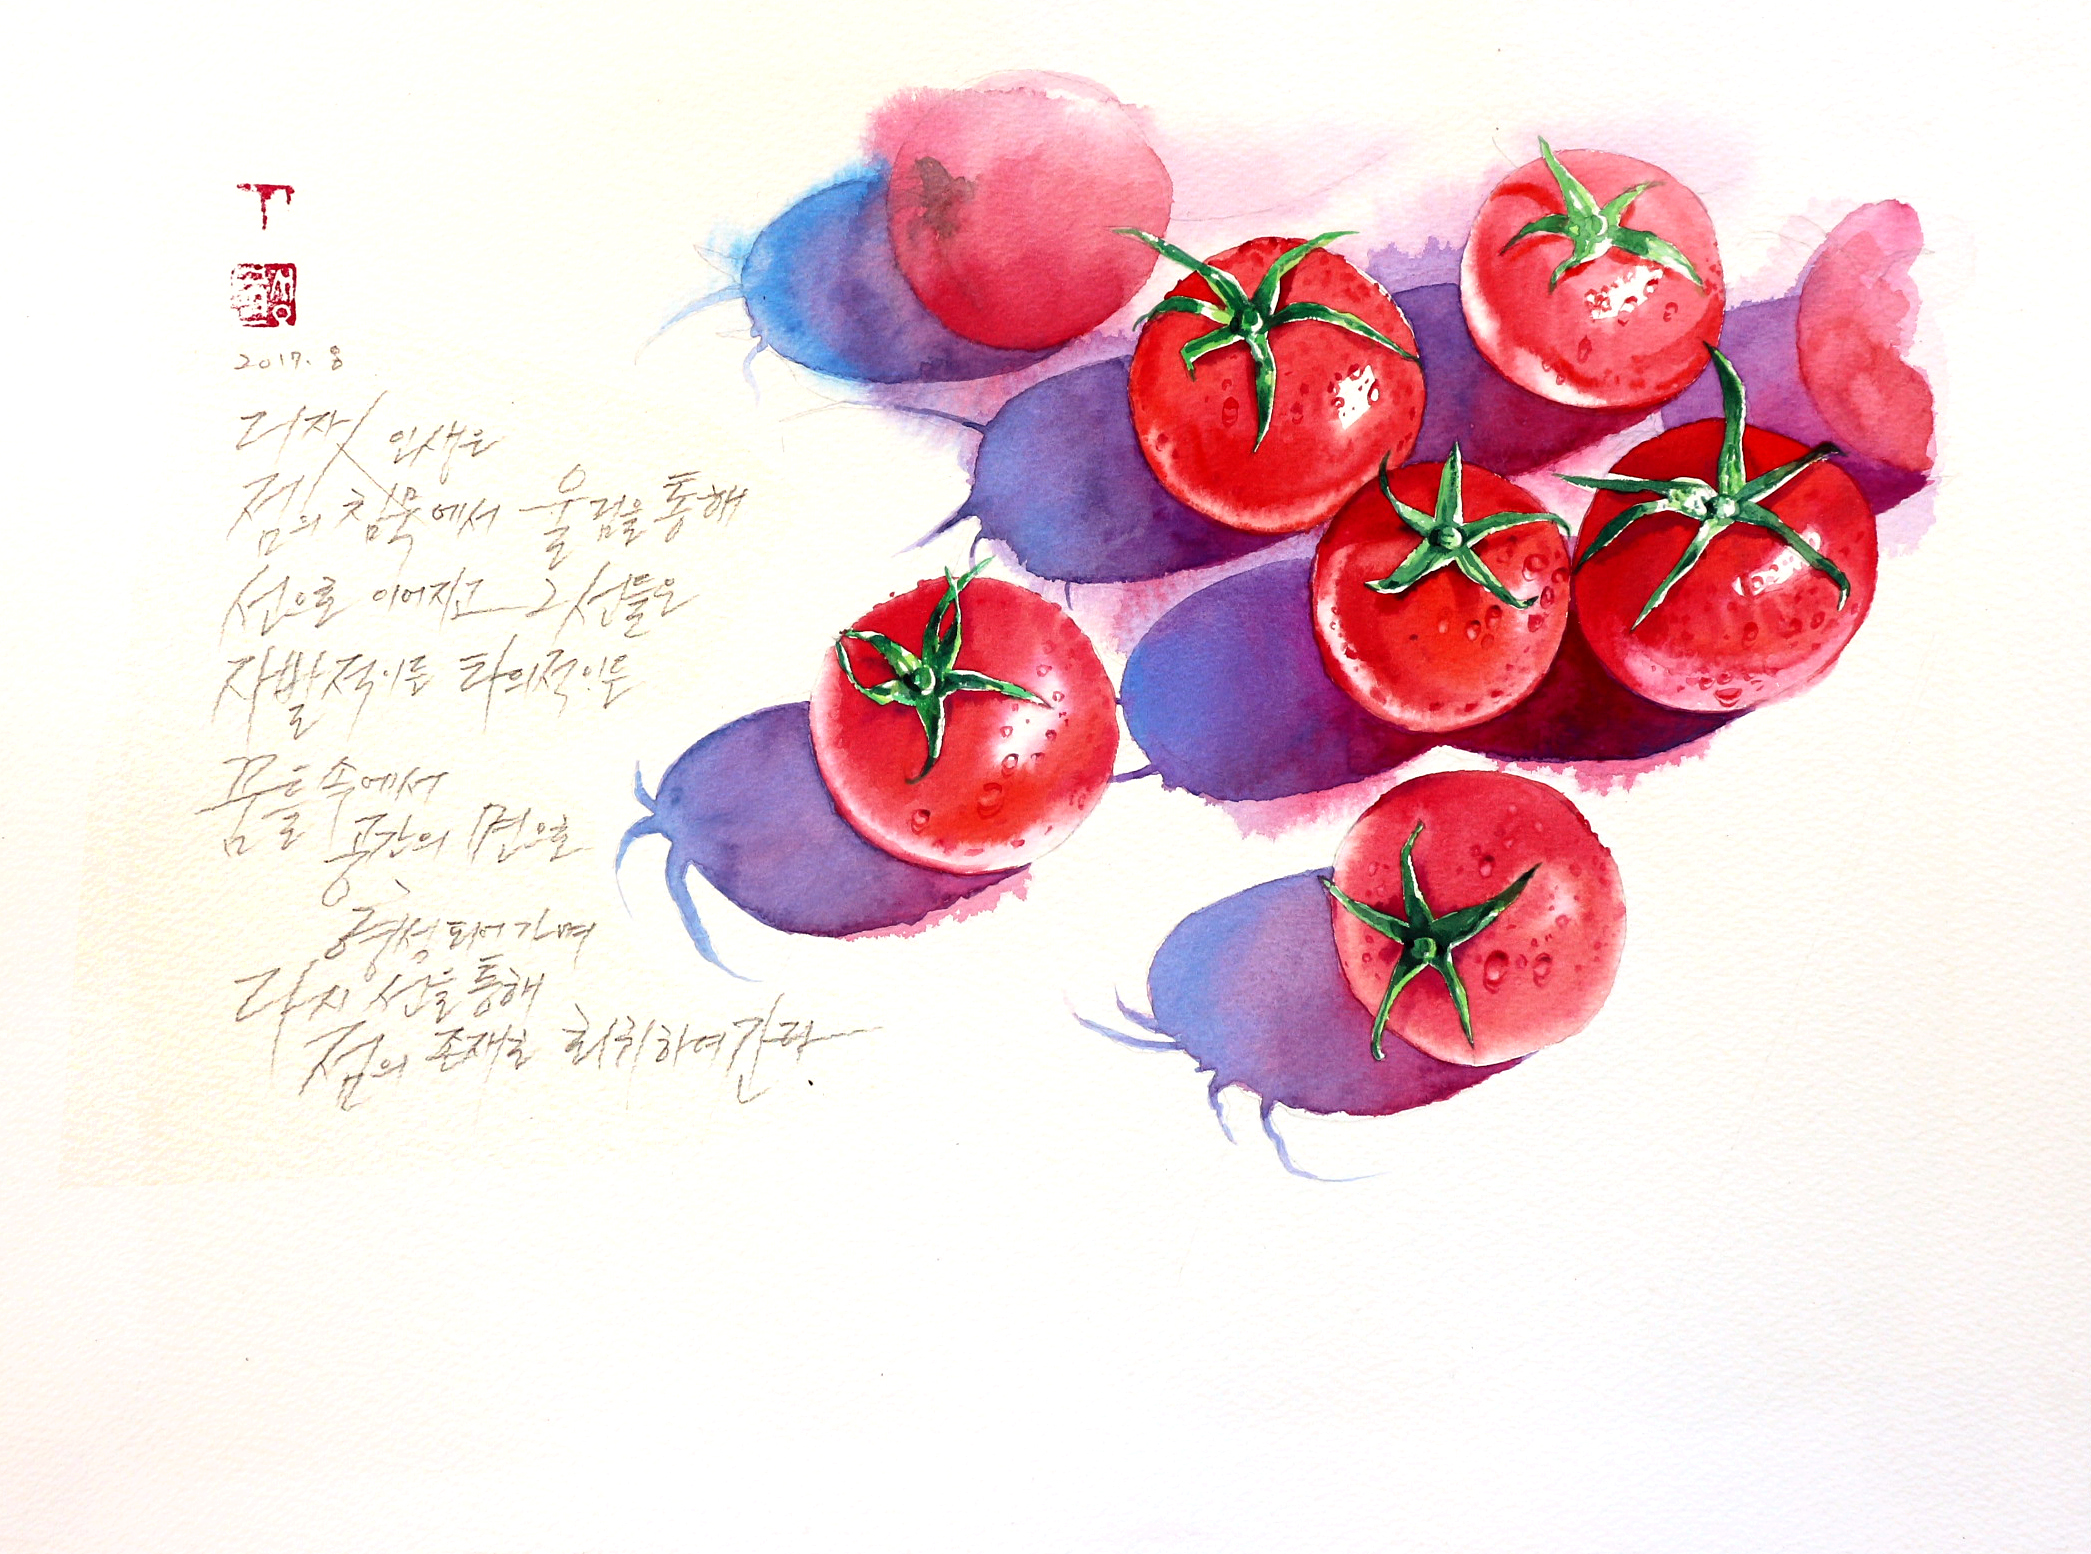 2017. 8
디자 인생은
점의 침묵에서 울림을 통해
선으로 이어지고 그 선들은
자발적이든 타의적이든
꿈틀 속에서
공간의 면으로
형성되어 가며
다시 선을 통해
점의 존재로 회귀하여 간다